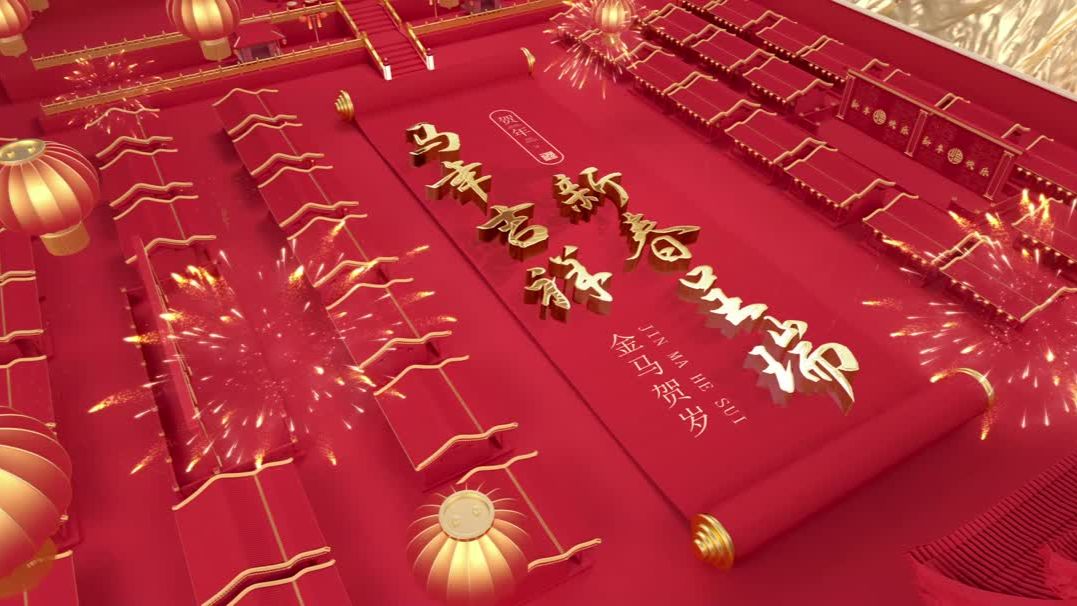 贺年
马年吉祥
新春呈瑞
JIN MA HE SUI
金马贺岁
新年快乐
新年快乐